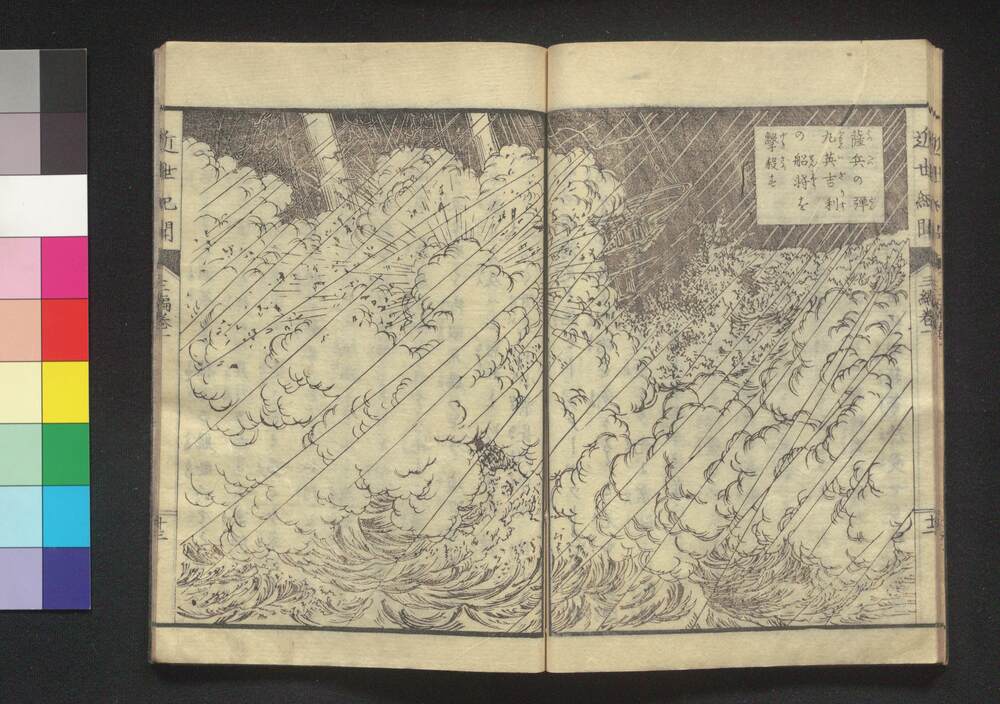 薩兵の弾
丸英吉利
の船将を
撃殺す
近世紀聞
十二
近世紀聞
三編巻
十三